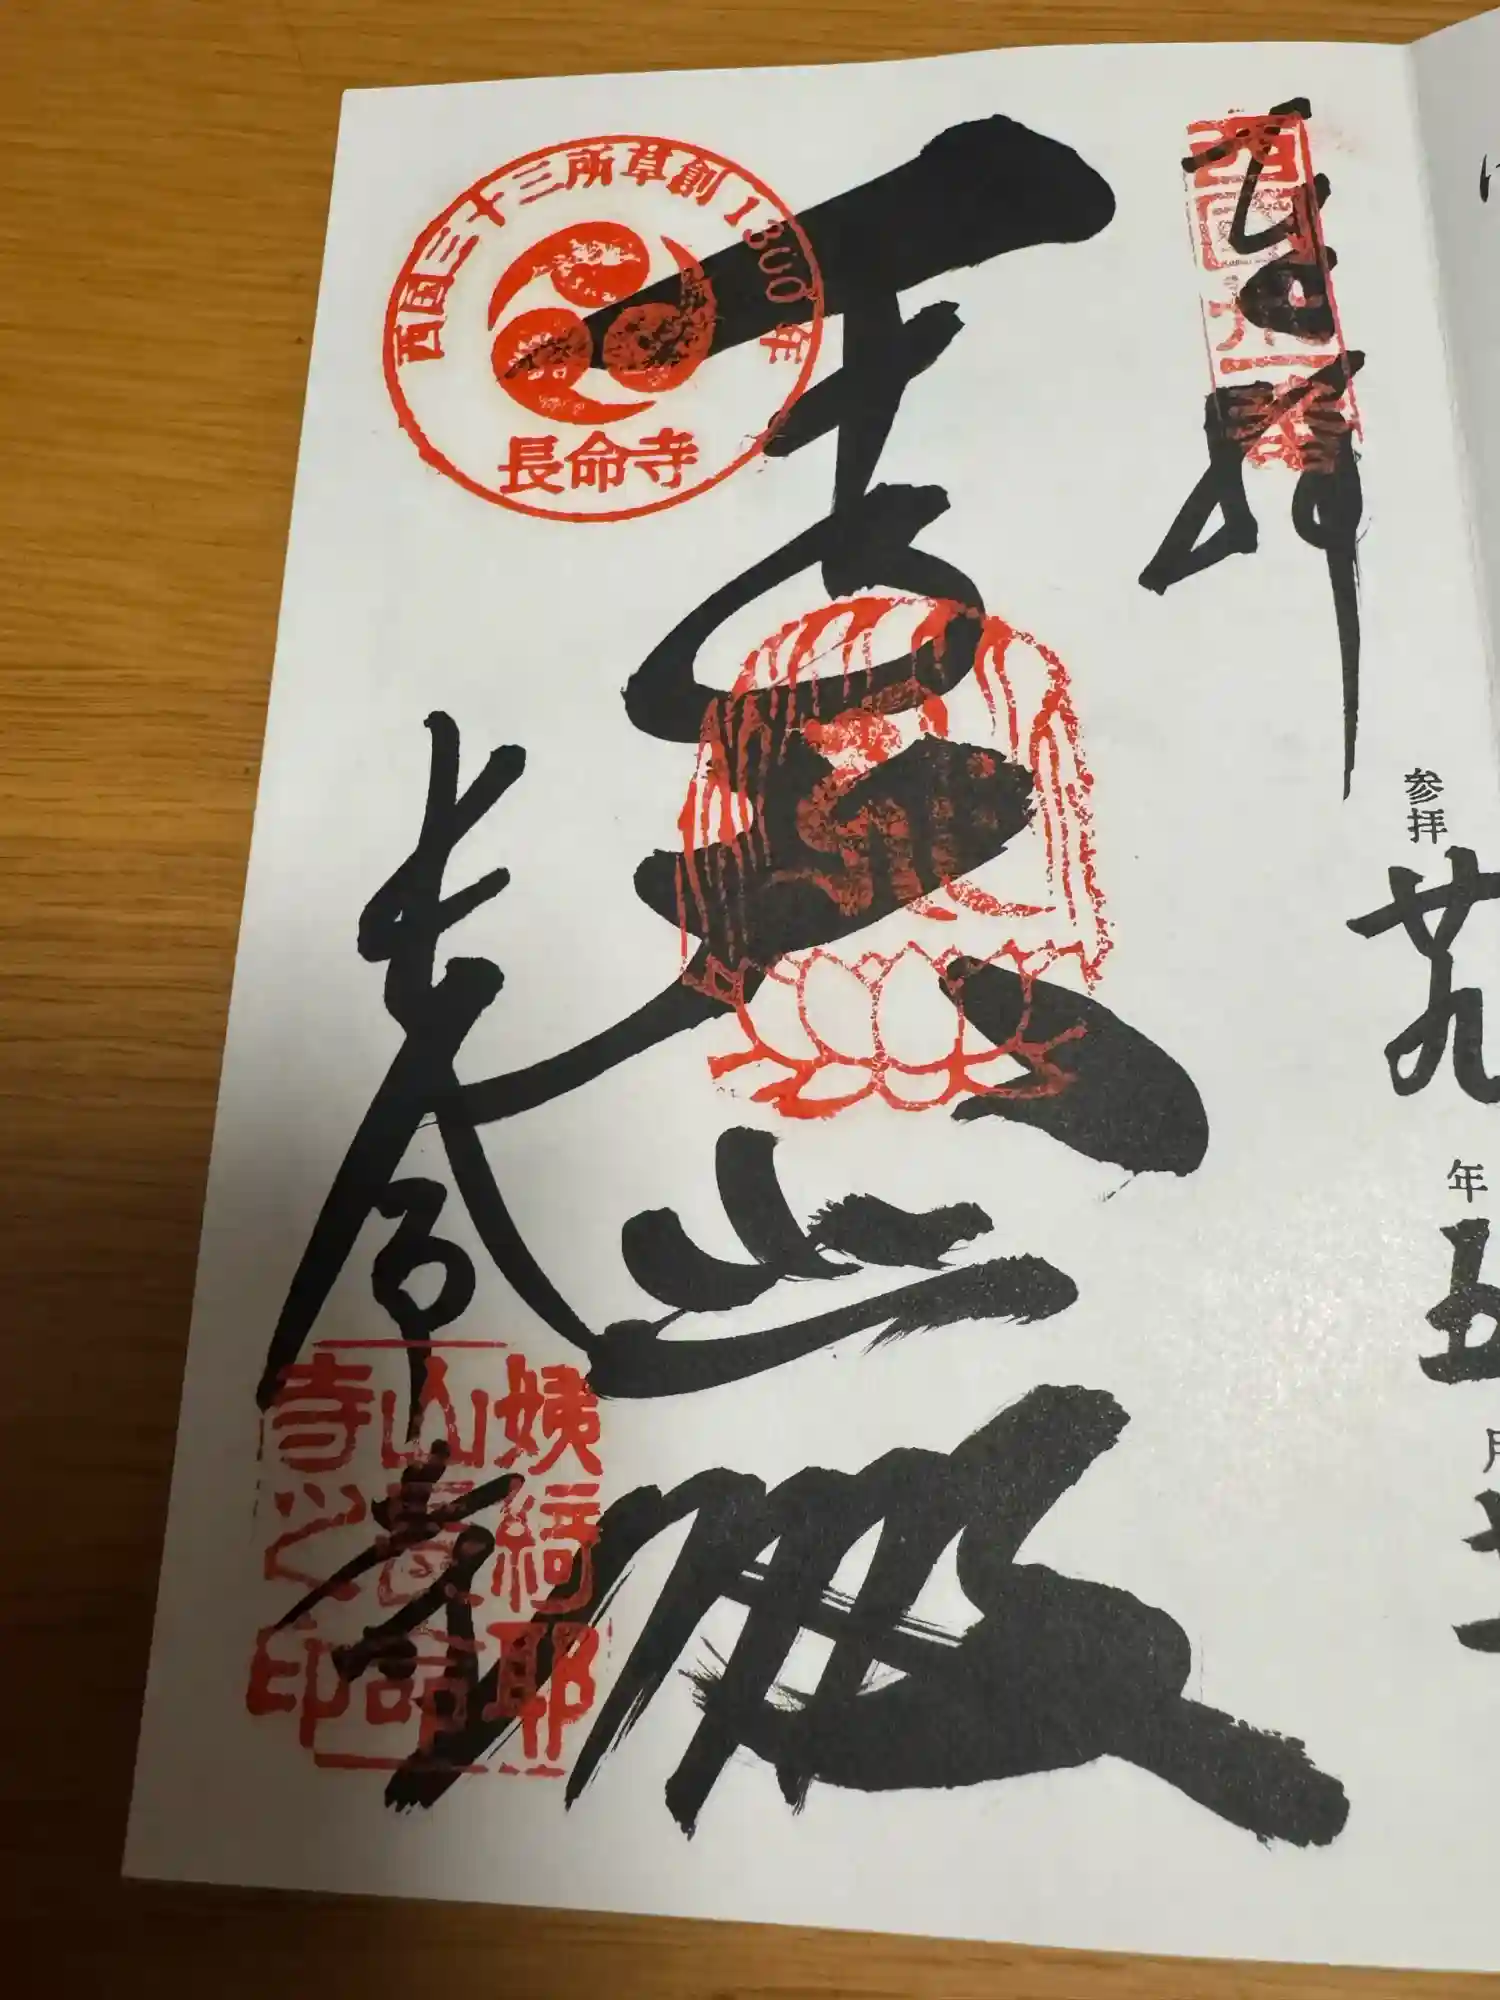 奉拝
西国三十一番
参拝
廿九
年
五
月
寿量殿
長命寺
西国三十三所草創1300年
長命寺
姨綺耶
山長命
寺之印